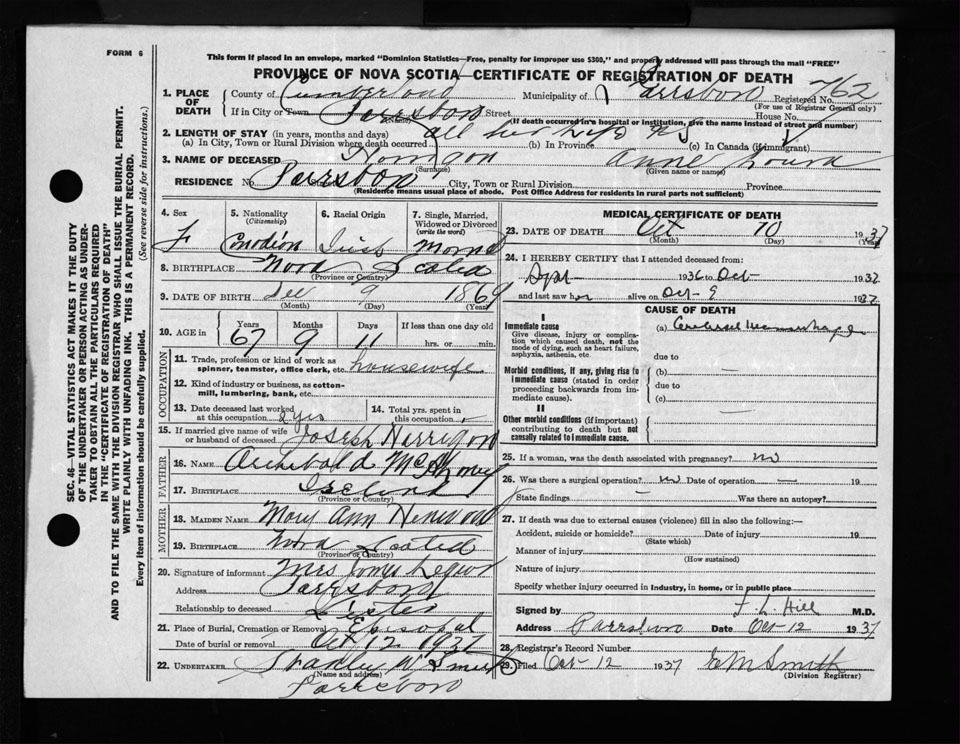 FORM 6
This form if placed in an envelope, marked "Dominion Statistics—Free, penalty for improper use $300," and properly addressed will pass through the mail "FREE"
PROVINCE OF NOVA SCOTIA—CERTIFICATE OF REGISTRATION OF DEATH
1. PLACE OF DEATH
County of Cumberland Municipality of Parrsboro Registered No. 762
(For use of Registrar General only)
If in City or Town Parrsboro Street House No.
(Name)
(If death occurred in a hospital or institution, give the name instead of street and number)
2. LENGTH OF STAY (in years, months and days) all her life
(a) In City, Town or Rural Division where death occurred (b) In Province (c) In Canada (if immigrant)
3. NAME OF DECEASED Anne Loura
(Surname) (Given name or names)
RESIDENCE No. Parrsboro City, Town or Rural Division Province
(Residence means usual place of abode. Post Office Address for residents in rural parts not sufficient)
4. Sex F
5. Nationality (Citizenship) Canadian
6. Racial Origin Iriss
7. Single, Married, Widowed or Divorced (write the word)
8. BIRTHPLACE Nova Scotia
(Province or Country)
9. DATE OF BIRTH Dec 9 1869
(Month) (Day) (Year)
10. AGE in Years Months Days If less than one day old
67 9 11 hrs. or min.
OCCUPATION
11. Trade, profession or kind of work as spinner, teamster, office clerk, etc. housewife
12. Kind of industry or business, as cotton-mill, lumbering, bank, etc.
13. Date deceased last worked at this occupation 2 yrs
14. Total yrs. spent in this occupation
15. If married give name of wife or husband of deceased Joseph
FATHER
16. NAME Archibald
17. BIRTHPLACE Ireland
(Province or Country)
MOTHER
18. MAIDEN NAME Mary Ann
19. BIRTHPLACE Nova Scotia
(Province or Country)
20. Signature of informant Mrs
Address Parrsboro
Relationship to deceased Sister
21. Place of Burial, Cremation or Removal Episopal
Date of burial or removal Oct 12 1937
22. UNDERTAKER Stanley W
(Name and address)
Parrsboro
MEDICAL CERTIFICATE OF DEATH
23. DATE OF DEATH Oct 10 1937
(Month) (Day) (Year)
24. I HEREBY CERTIFY that I attended deceased from:
1936 to Oct 1937
and last saw her alive on Oct 9 1937
CAUSE OF DEATH
I
Immediate cause
Give disease, injury or complication which caused death, not the mode of dying, such as heart failure, asphyxia, asthenia, etc.
(a) Cerebral
due to
Morbid conditions, if any, giving rise to immediate cause (stated in order proceeding backwards from immediate cause).
(b) —
due to
(c)
II
Other morbid conditions (if important) contributing to death but not causally related to immediate cause.
25. If a woman, was the death associated with pregnancy? no
26. Was there a surgical operation? no Date of operation — 19
State findings — Was there an autopsy?
27. If death was due to external causes (violence) fill in also the following:—
Accident, suicide or homicide? Date of injury 19
(State which)
Manner of injury
(How sustained)
Nature of injury
Specify whether injury occurred in industry, in home, or in public place
Signed by F. L. Hill M.D.
Address Parrsboro Date Oct 12 1937
28. Registrar's Record Number
29. Filed Oct 12 1937 Smith
(Division Registrar)
SEC. 46—VITAL STATISTICS ACT MAKES IT THE DUTY
OF THE UNDERTAKER OR PERSON ACTING AS UNDER-
TAKER TO OBTAIN ALL THE PARTICULARS REQUIRED
IN THE "CERTIFICATE OF REGISTRATION OF DEATH"
AND TO FILE THE SAME WITH THE DIVISION REGISTRAR WHO SHALL ISSUE THE BURIAL PERMIT.
WRITE PLAINLY WITH UNFADING INK. THIS IS A PERMANENT RECORD.
Every item of information should be carefully supplied. (See reverse side for instructions.)